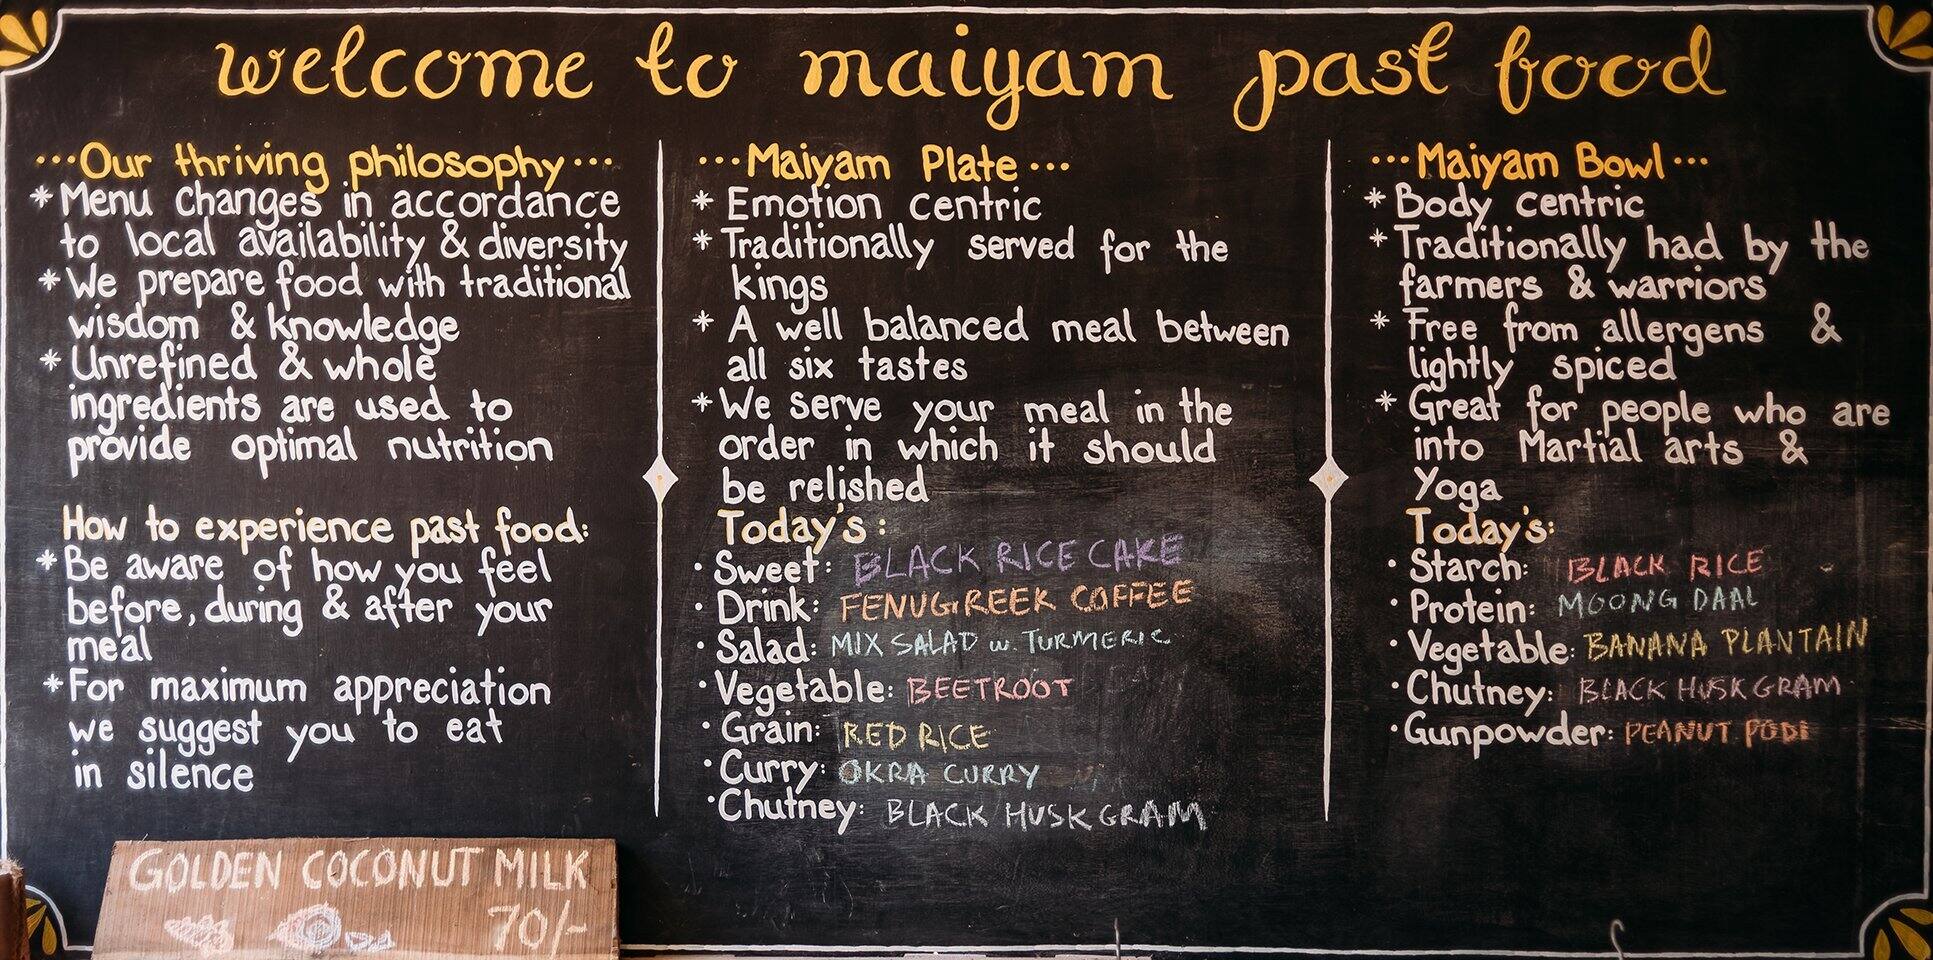 welcome to maiyam past food
...Our thriving philosophy...
* Menu changes in accordance
to local availability & diversity
* We prepare food with traditional
wisdom & knowledge
* Unrefined & whole
ingredients are used to
provide optimal nutrition
How to experience past food:
* Be aware of how you feel
before, during & after your
meal
* For maximum appreciation
we suggest you to eat
in silence
...Maiyam Plate...
* Emotion centric
* Traditionally served for the
kings
* A well balanced meal between
all six tastes
* We serve your meal in the
order in which it should
be relished
Today's:
• Sweet: BLACK RICE CAKE
• Drink: FENUGREEK COFFEE
• Salad: MIX SALAD w. TURMERIC
• Vegetable: BEETROOT
• Grain: RED RICE
• Curry: OKRA CURRY
• Chutney: BLACK HUSK GRAM
...Maiyam Bowl...
* Body centric
* Traditionally had by the
farmers & warriors
* Free from allergens &
lightly spiced
* Great for people who are
into Martial arts &
Yoga
Today's:
• Starch: BLACK RICE
• Protein: MOONG DAAL
• Vegetable: BANANA PLANTAIN
• Chutney: BLACK HUSK GRAM
• Gunpowder: PEANUT PODI
GOLDEN COCONUT MILK
70/-